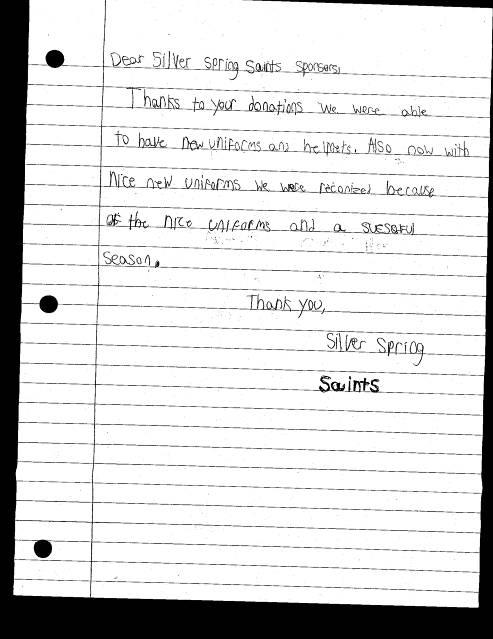 Dear Silver Spring Saints Sponsors,
Thanks to your donations we were able
to have new uniforms and helmets. Also now with
nice new uniforms we were reconized because
of the nice uniforms and a sucessful
season.
Thank you,
Silver Spring
Saints